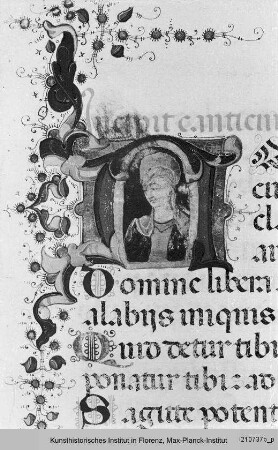 Incipit canticu
Domine libera
alabijs iniquis
Quid detur tibi
ponatur tibi: ad
Sagitte potent
Kunsthistorisches Institut in Florenz, Max-Planck-Institut